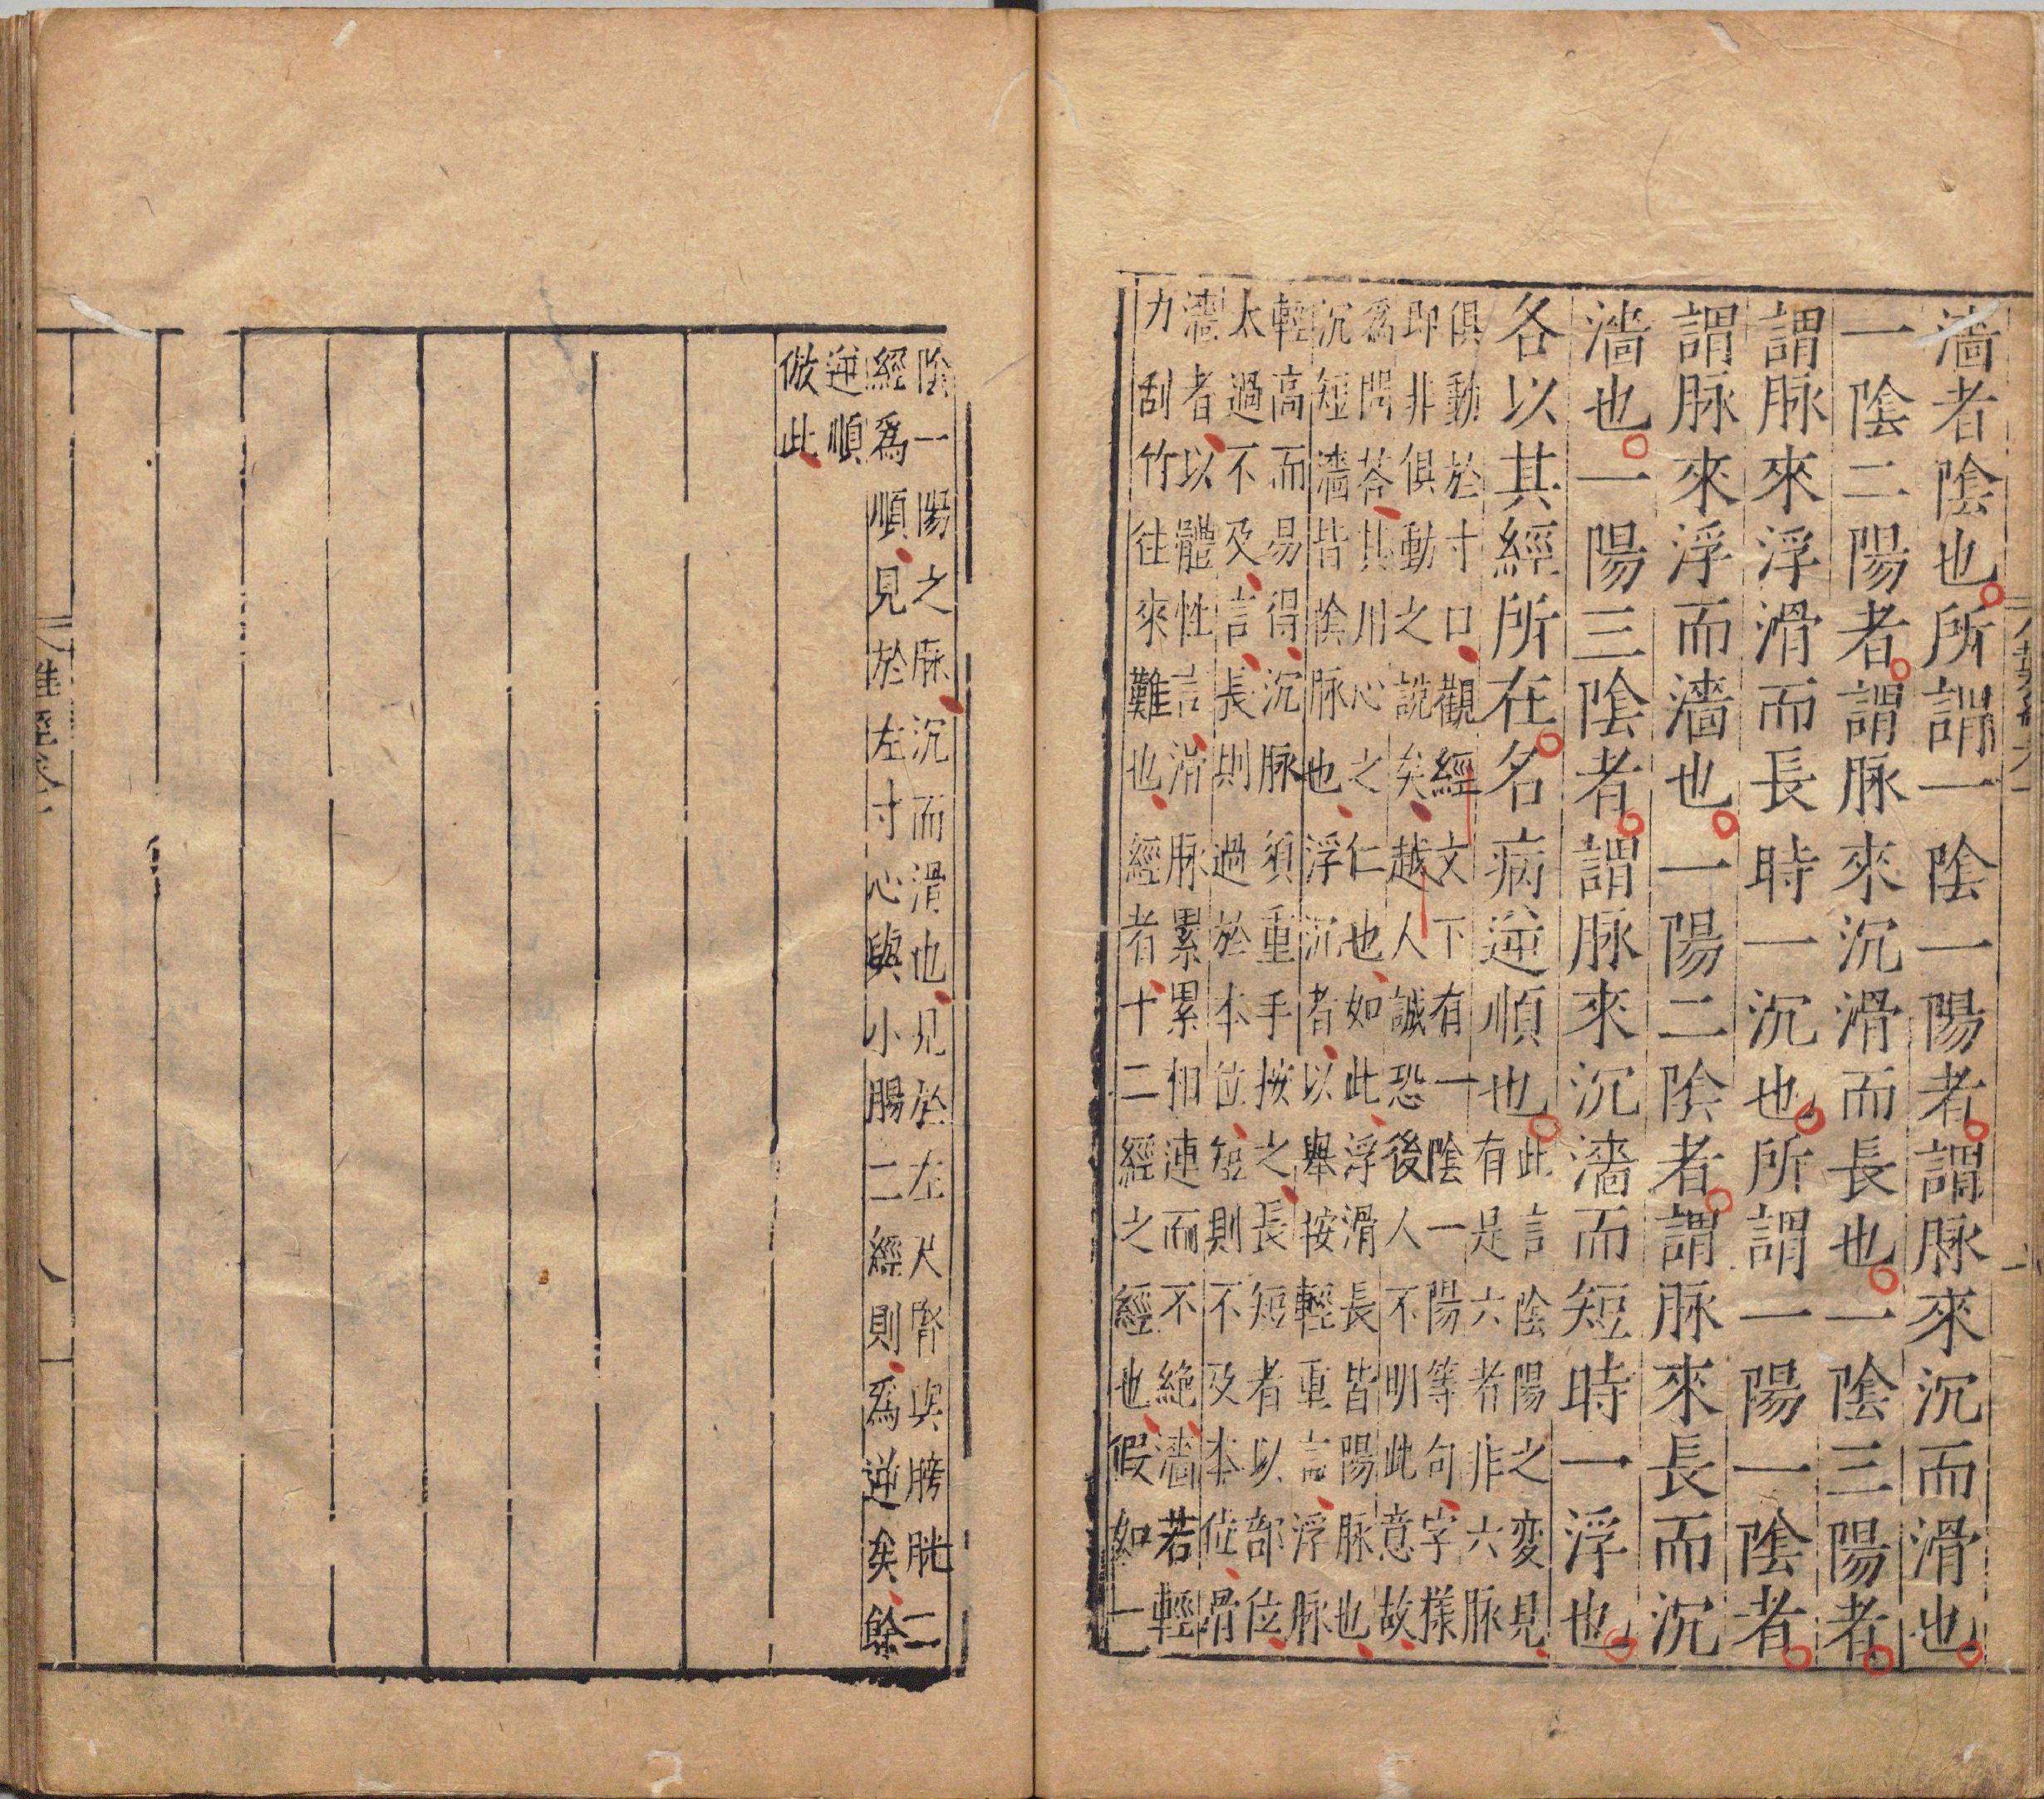 濇者陰也所謂一陰一陽者謂脉來沉而滑也
一陰二陽者謂脉來沉滑而長也一陰三陽者
謂脉來浮滑而長時一沉也所謂一陽一陰者
謂脉來浮而濇也一陽二陰者謂脉來長而沉
濇也一陽三陰者謂脉來沉濇而短時一浮也
各以其經所在名病逆順也
此言陰陽之変見
有是六者非六脉
俱動於寸口觀經文下有一陰一陽等句字樣
即非俱動之說矣越人誠恐後人不明此意故
爲問荅其用心之仁也如此浮滑長皆陽脉也
沉短濇皆陰脉也浮沉者以舉按輕重言浮脉
輕高而易得沉脉須重手按之長短者以部位
太過不及言長則過於本位短則不及本位滑
濇者以體性言滑脉累累扣連而不絶濇若輕
力刮竹往來難也經者十二經之經也假如一
陰一陽之脉沉而滑也見於左尺腎與膀胱二
經爲順見於左寸心與小腸二經則爲逆矣餘
逆順
倣此